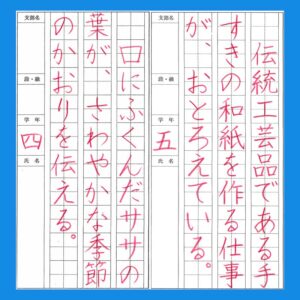 伝統工芸品である手
すきの和紙を作る仕事
が、おとろえている。
支部名
段・級
学年
五
氏名
口にふくんだササの
葉が、さわやかな季節
のかおりを伝える。
支部名
段・級
学年
四
氏名